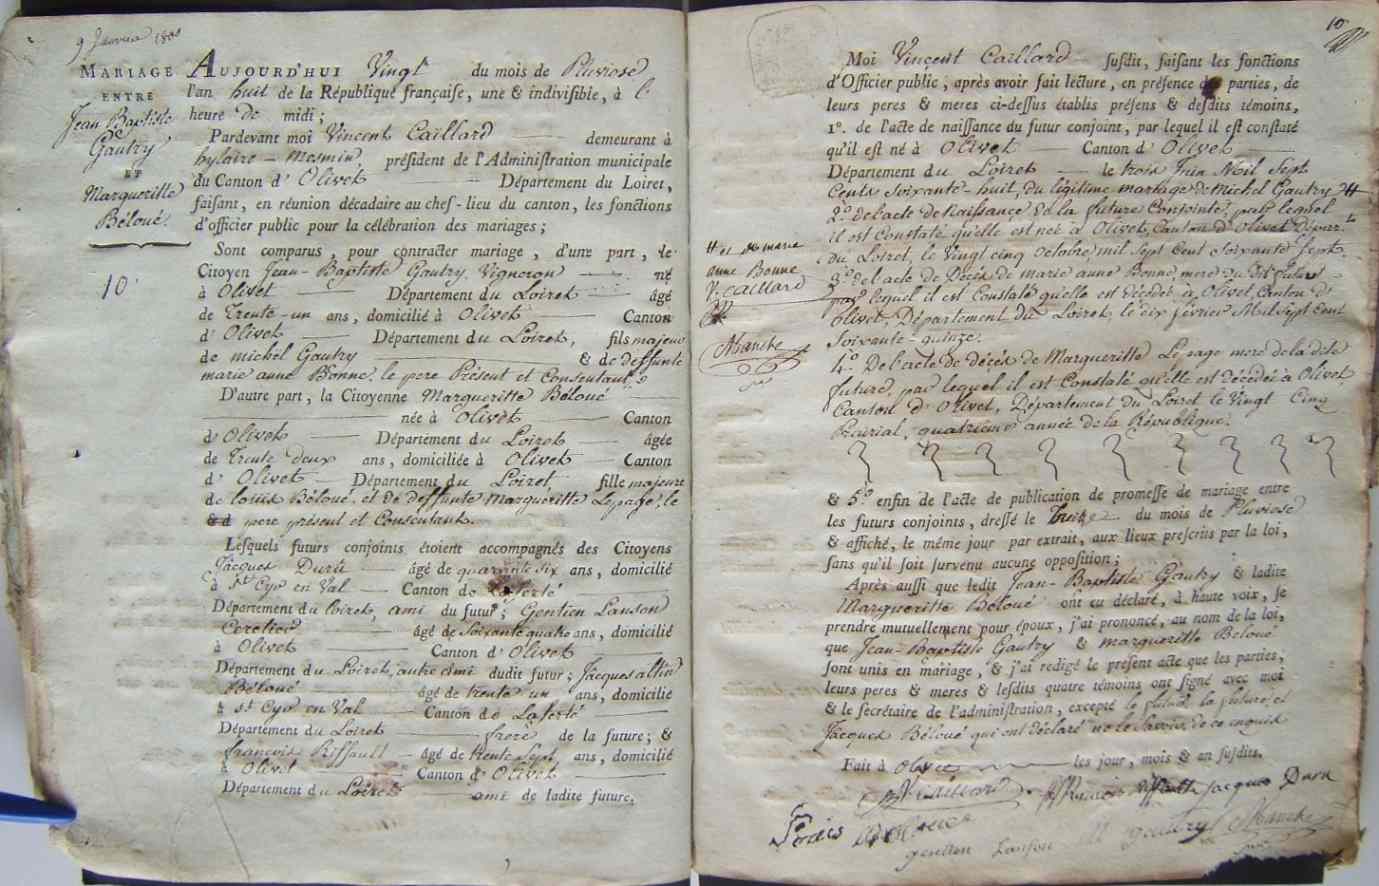 9 Janvier 1800
MARIAGE
ENTRE
Jean Baptiste
Gautry
ET
Margueritte
Béloué.
10
AUJOURD'HUI Vingt du mois de Pluviose
l'an huit de la République françaiſe, une & indiviſible, à l'
heure de midi ;
Pardevant moi Vincent Caillard demeurant à
hylaire - Mesmin, préſident de l'Adminiſtration municipale
du Canton d' Olivet Département du Loiret,
faiſant, en réunion décadaire au chef-lieu du canton, les fonctions
d'officier public pour la célébration des mariages ;
Sont comparus, pour contracter mariage, d'une part, le
Citoyen Jean-Baptiste Gautry, Vigneron né
à Olivet Département du Loiret âgé
de Trente-un ans, domicilié à Olivet Canton
d' Olivet Département du Loiret, fils majeur
de michel Gautry & de deffunte
marie anne Bonne. le pere Présent et Consentant,
D'autre part, la Citoyenne Margueritte Béloué
née à Olivet Canton
d' Olivet Département du Loiret âgée
de Trente deux ans, domiciliée à Olivet Canton
d' Olivet Département du Loiret fille majeure
de louis Béloué. et de deffunte Margueritte Lepage, le
pere présent et Consentant.
Leſquels futurs conjoints étoient accompagnés des Citoyens
Jacques Duru âgé de quarante six ans, domicilié
à st Cyr en Val Canton de Laferté
Département du Loiret, ami du futur ; Gentien Lanson
âgé de Soixante quatre ans, domicilié
à Olivet Canton d' Olivet
Département du Loiret, autre ami dudit futur ; Jacques
Béloué âgé de trente un ans, domicilié
à st Cyr en Val Canton de Laferté
Département du Loiret frere de la future ; &
françois Riffault âgé de trente Sept ans, domicilié
à Olivet Canton d' Olivet
Département du Loiret ami de ladite future.
10
Moi Vincent Caillard ſuſdit, faiſant les fonctions
d'Officier public, après avoir fait lecture, en préſence des parties, de
leurs peres & meres ci-deſſus établis préſens & deſdits témoins,
1°. de l'acte de naiſſance du futur conjoint, par lequel il eſt conſtaté
qu'il eſt né à Olivet Canton d' Olivet
Département du Loiret le trois Juin Mil Sept
Cents Soixante-huit, du légitime mariage de Michel Gautry #
2° de l'acte de Naissance de la future Conjointe, par lequel
il est Constaté qu'elle est née à Olivet, Canton d'Olivet Dépar.t
du Loiret, le Vingt cinq Octobre mil Sept Cent Soixante Sept.
3° de l'acte de Décès de marie anne Bonne, mere du dit futur
par lequel il est Constaté qu'elle est décédée à Olivet, Canton d'
Olivet, Département du Loiret, le dix février Mil Sept Cent
Soixante-quinze.
4° De l'acte de décès de Margueritte Lepage mere de la dite
future, par lequel il est Constaté qu'elle est décédée à Olivet,
Canton d'Olivet, Département du Loiret le Vingt Cinq
Prairial, quatrieme année de la République.
# et de marie
anne Bonne
V. CAILLARD
Manche
& 5° enfin de l'acte de publication de promeſſe de mariage entre
les futurs conjoints, dreſſé le du mois de Pluviose
& affiché, le même jour par extrait, aux lieux preſcrits par la loi,
ſans qu'il ſoit ſurvenu aucune oppoſition ;
Après auſſi que ledit Jean-Baptiste Gautry & ladite
Margueritte Béloué ont eu déclaré, à haute voix, ſe
prendre mutuellement pour époux, j'ai prononcé, au nom de la loi,
que Jean-Baptiste Gautry & margueritte Béloué
ſont unis en mariage, & j'ai redigé le préſent acte que les parties,
leurs peres & meres & leſdits quatre témoins ont ſigné avec moi
& le ſecrétaire de l'adminiſtration, excepté le futur, la future, et
Jacques Béloué qui ont déclaré ne le Savoir de ce enquis
Fait à Olivet les jour, mois & an ſuſdits.
V. Caillard François Riffault Jacques Duru
gentien Lanson M gautry Manche